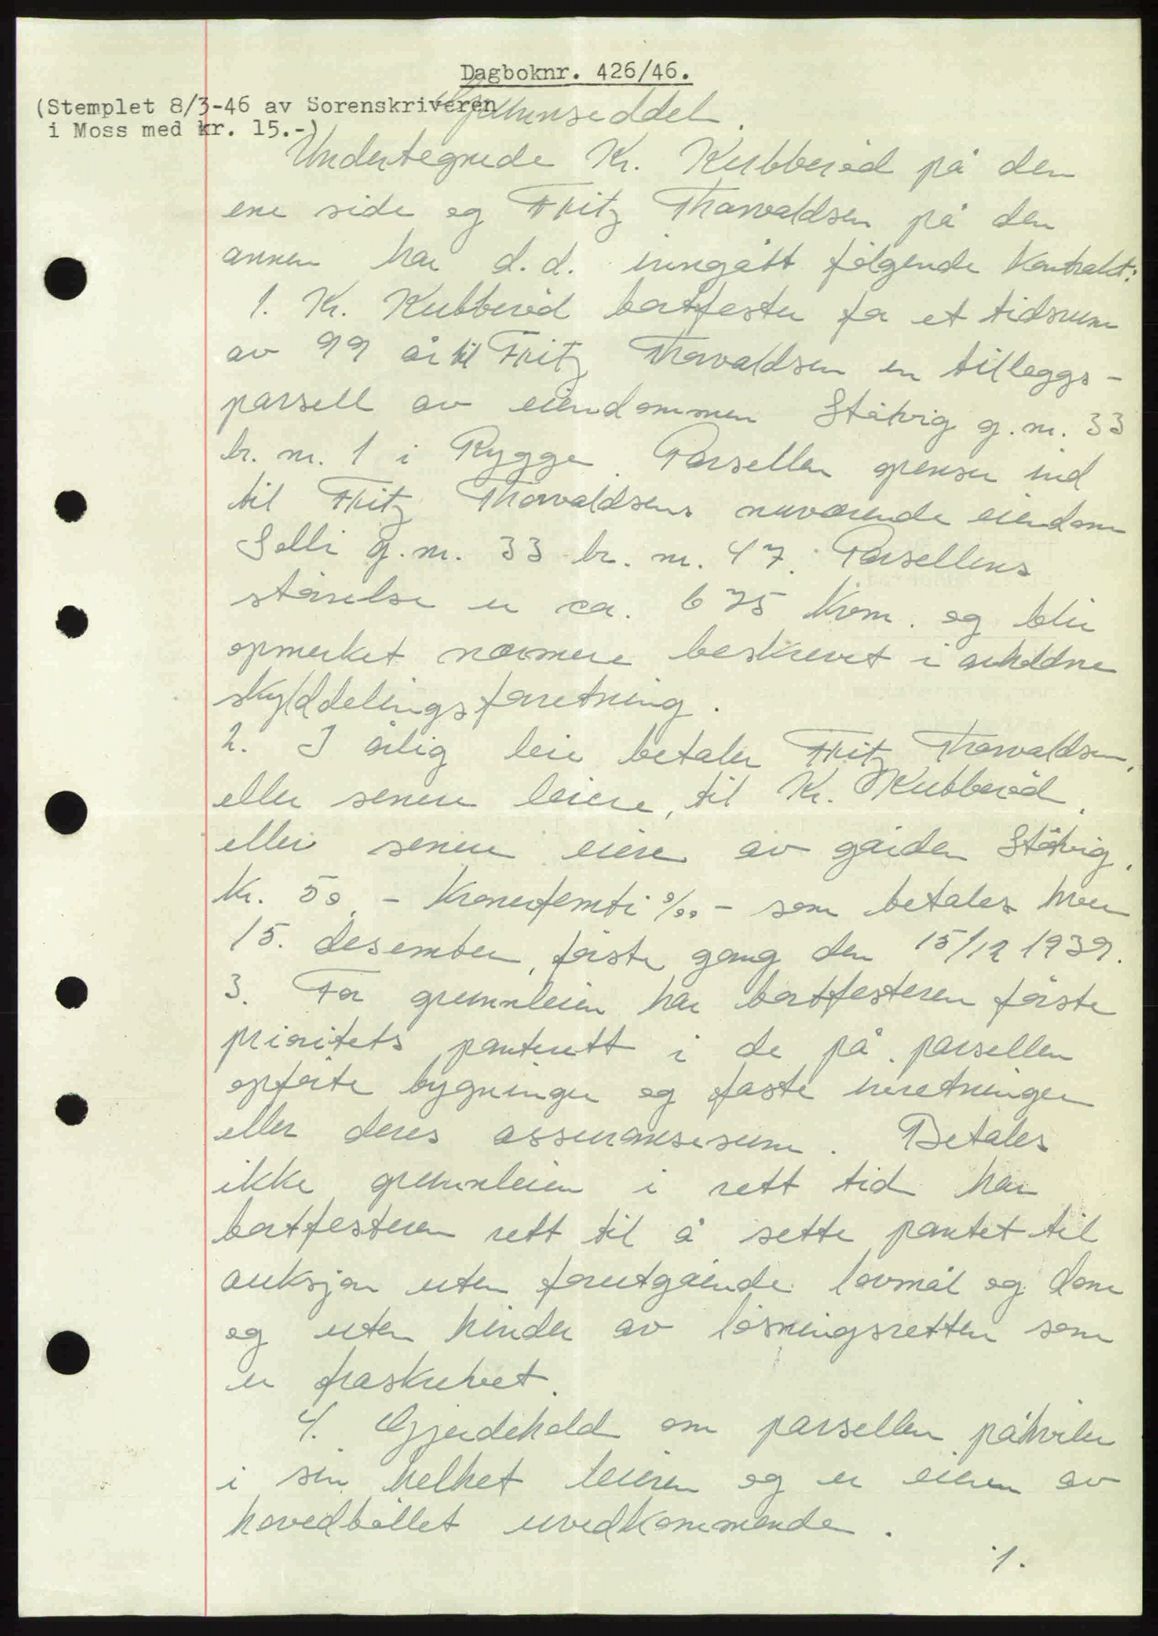 Dagboknr. 426/46.
(Stemplet 8/3-46 av Sorenskriveren
i Moss med kr. 15.-)
Grunnseddel.
Undertegnede Kr. Kubberød på den
ene side og Fritz Thorvaldsen på den
annen har d.d. inngått følgende kontrakt:
1. Kr. Kubberød bortfester for et tidsrum
av 99 år til Fritz Thorvaldsen en tilleggs-
parsell av eiendommen Støtvig g.nr. 33
br. nr. 1 i Rygge. Parsellen grenser ind
til Fritz Thorvaldsens nuværende eiendom
Solli g.nr. 33 br. nr. 47. Parsellens
størrelse er ca. 675 kvm. og blir
opmerket nærmere beskrevet i avholdne
skylddelingsforretning.
2. I årlig leie betaler Fritz Thorvaldsen,
eller senere leiere, til Kr. Kubberød,
eller senere eiere av gården Støtvig,
Kr. 50,- kronerfemti %oo - som betales hver
15. desember, første gang den 15/12 1939.
3. For grunnleien har bortfesteren første
prioritets panterett i de på parsellen
opførte bygninger og faste inretninger
eller deres assuransesum. Betales
ikke grunnleien i rett tid har
bortfesteren rett til å sette pantet til
auksjon uten forutgående lovmål og dom
og uten hinder av løsningsretten som
er fraskrevet.
4. Gjerdehold om parsellen påhviler
i sin helhet leieren og er eieren av
hovedbøllet uvedkommende.
./.